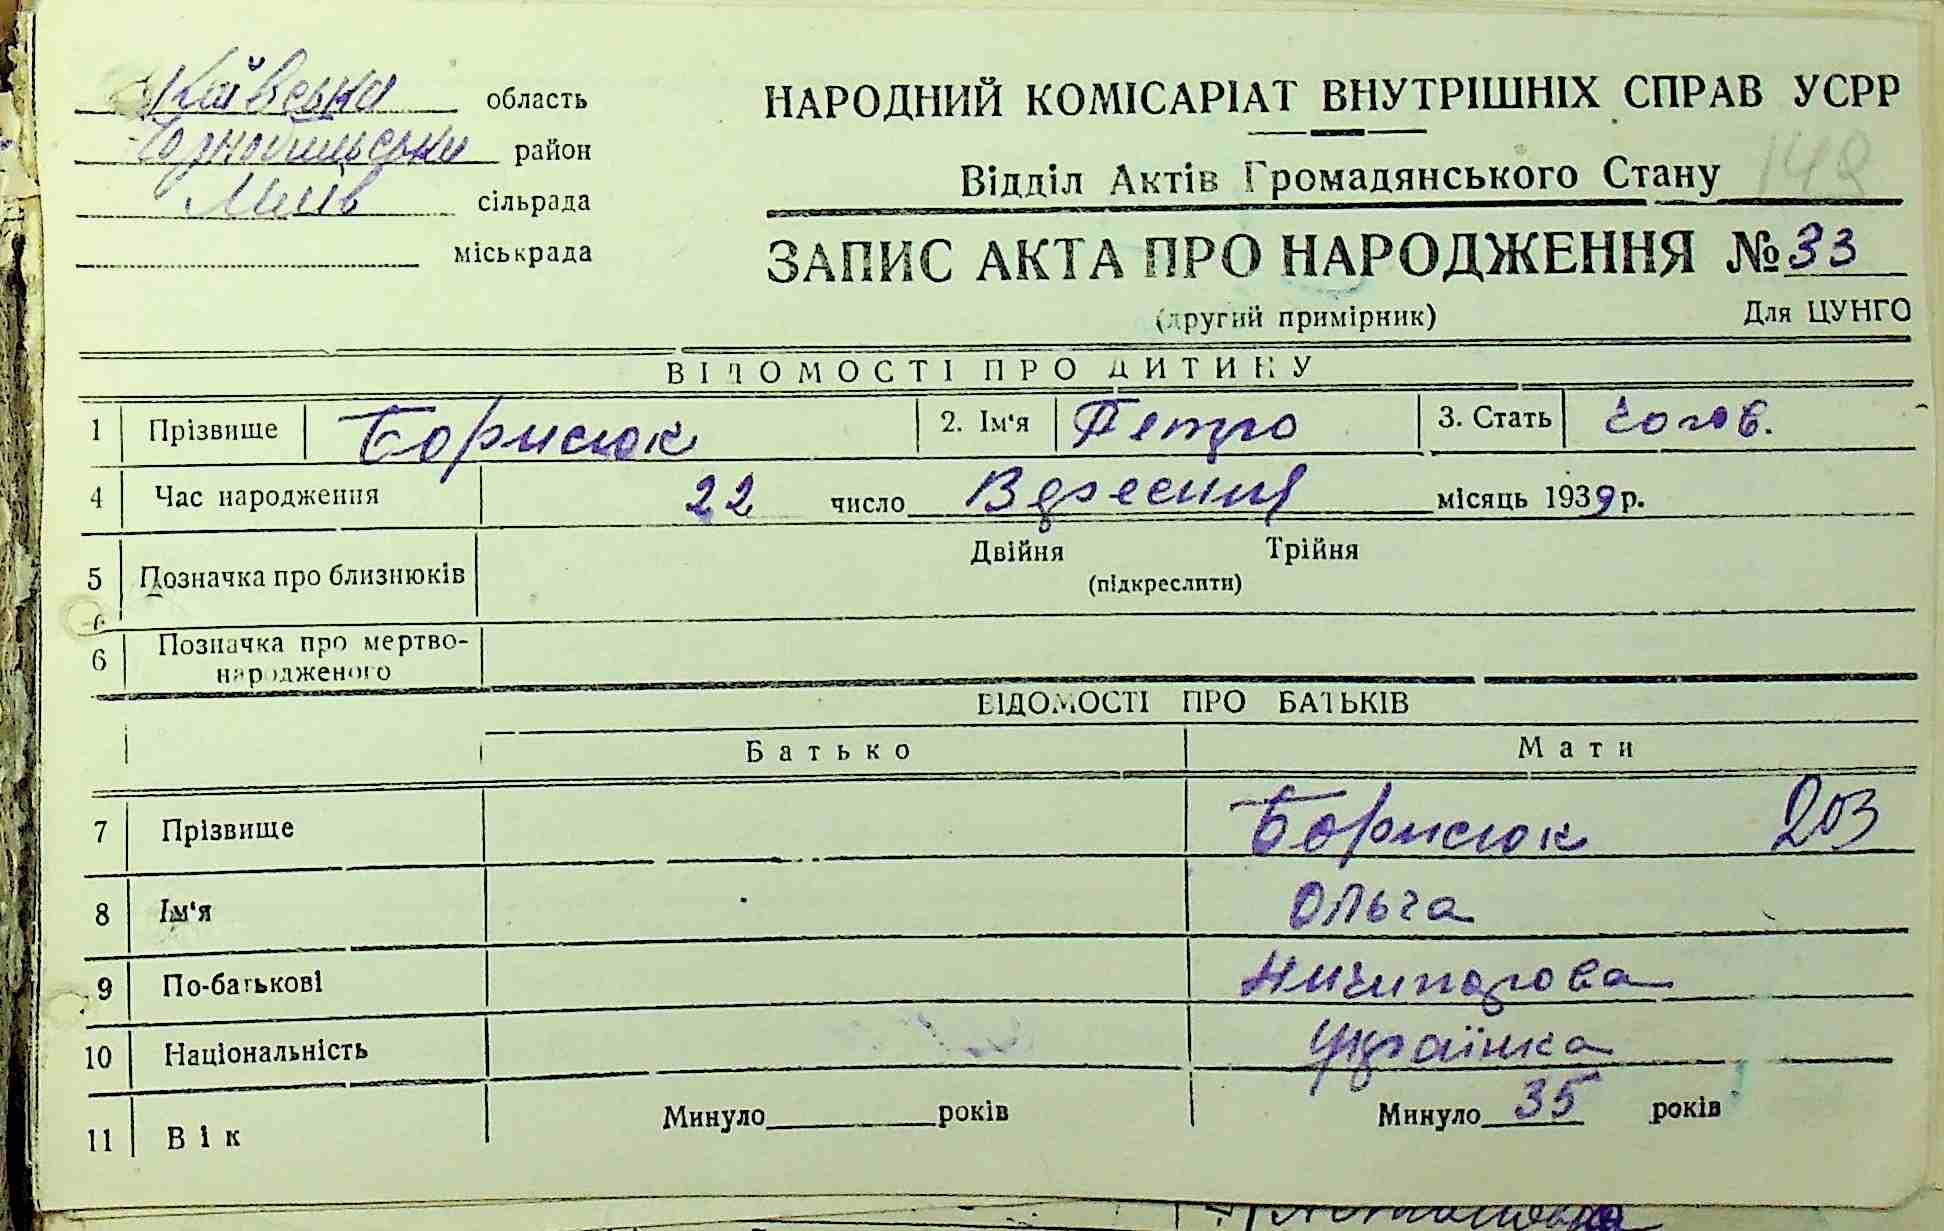 Київська область
Чорнобильський район
сільрада
міськрада
НАРОДНИЙ КОМІСАРІАТ ВНУТРІШНІХ СПРАВ УСРР
Відділ Актів Громадянського Стану 149
ЗАПИС АКТА ПРО НАРОДЖЕННЯ № 33
(другий примірник) Для ЦУНГО
ВІДОМОСТІ ПРО ДИТИНУ
1 Прізвище Борисюк 2. Ім'я Петро 3. Стать чолов.
4 Час народження 22 число Вересния місяць 1939 р.
5 Позначка про близнюків Двійня Трійня
(підкреслити)
6 Позначка про мертво-
народженого
ВІДОМОСТІ ПРО БАТЬКІВ
Батько Мати
7 Прізвище Борисюк 203
8 Ім'я Ольга
9 По-батькові Ничипорова
10 Національність Українка
11 Вік Минуло років Минуло 35 років